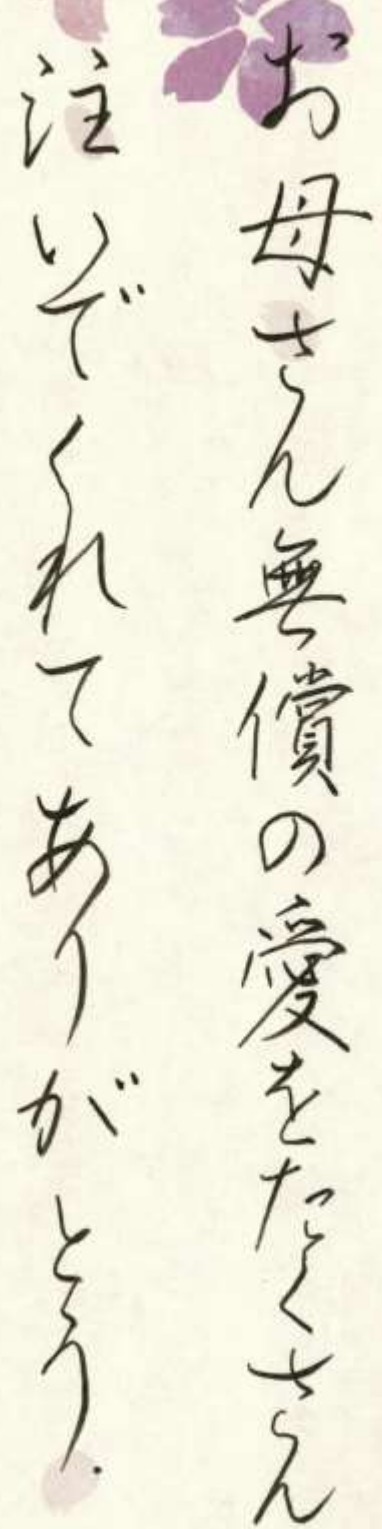 お母さん無償の愛をたくさん
注いでくれてありがとう.